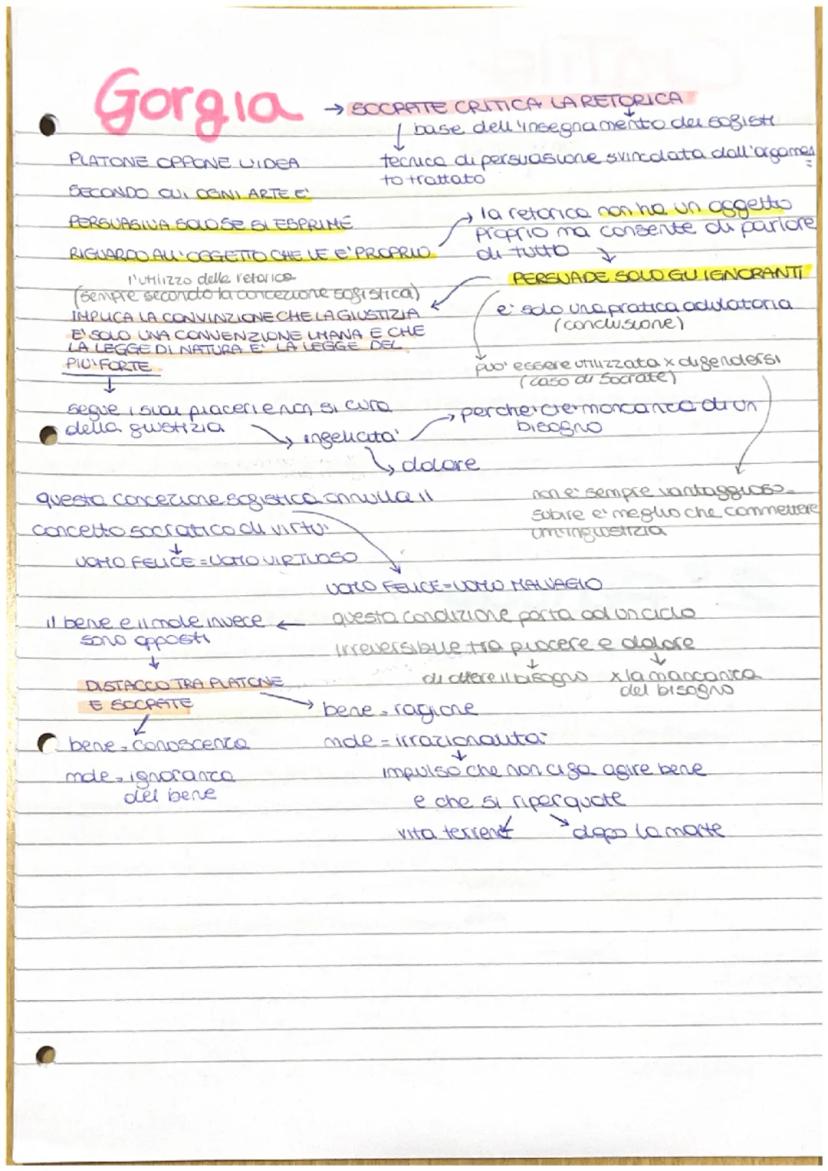 Gorgia → SOCRATE CRITICA LA RETORICA
base dell'insegnamento dei sofisti
tecnica di persuasione svincolata dall'argomen
to trattato
PLATONE OPPONE L'IDEA
SECONDO CUI OGNI ARTE E'
PERSUASIVA SOLO SE SI ESPRIME
RIGUARDO ALL'OGGETTO CHE LE E' PROPRIO
→ la retorica non ha un oggetto
proprio ma consente di parlare
di tutto
PERSUADE SOLO GLI IGNORANTI
l'utilizzo della retorica
(sempre secondo la concezione sofistica)
IMPLICA LA CONVINZIONE CHE LA GIUSTIZIA
E' SOLO UNA CONVENZIONE UMANA E CHE
LA LEGGE DI NATURA E' LA LEGGE DEL
PIU' FORTE
e' solo una pratica adulatoria
(conclusione)
puo' essere utilizzata x difendersi
(caso di Socrate)
segue i suoi piaceri e non si cura
della giustizia
→ infelicita'
→ perche c'e mancanza di un
bisogno
→ dolore
non e' sempre vantaggioso
subire e' meglio che commettere
un'ingiustizia
questa concezione sofistica annulla il
concetto socratico di virtu'
UOMO FELICE = UOMO VIRTUOSO
UOMO FELICE = UOMO MALVAGIO
questa condizione porta ad un ciclo
irreversibile tra piacere e dolore
di avere il bisogno
x la mancanza
del bisogno
il bene e il male invece ←
sono opposti
DISTACCO TRA PLATONE
E SOCRATE
bene = conoscenza
male = ignoranza
del bene
bene = ragione
male = irrazionalita'
impulso che non ci fa agire bene
e che si ripercuote
vita terrena
dopo la morte